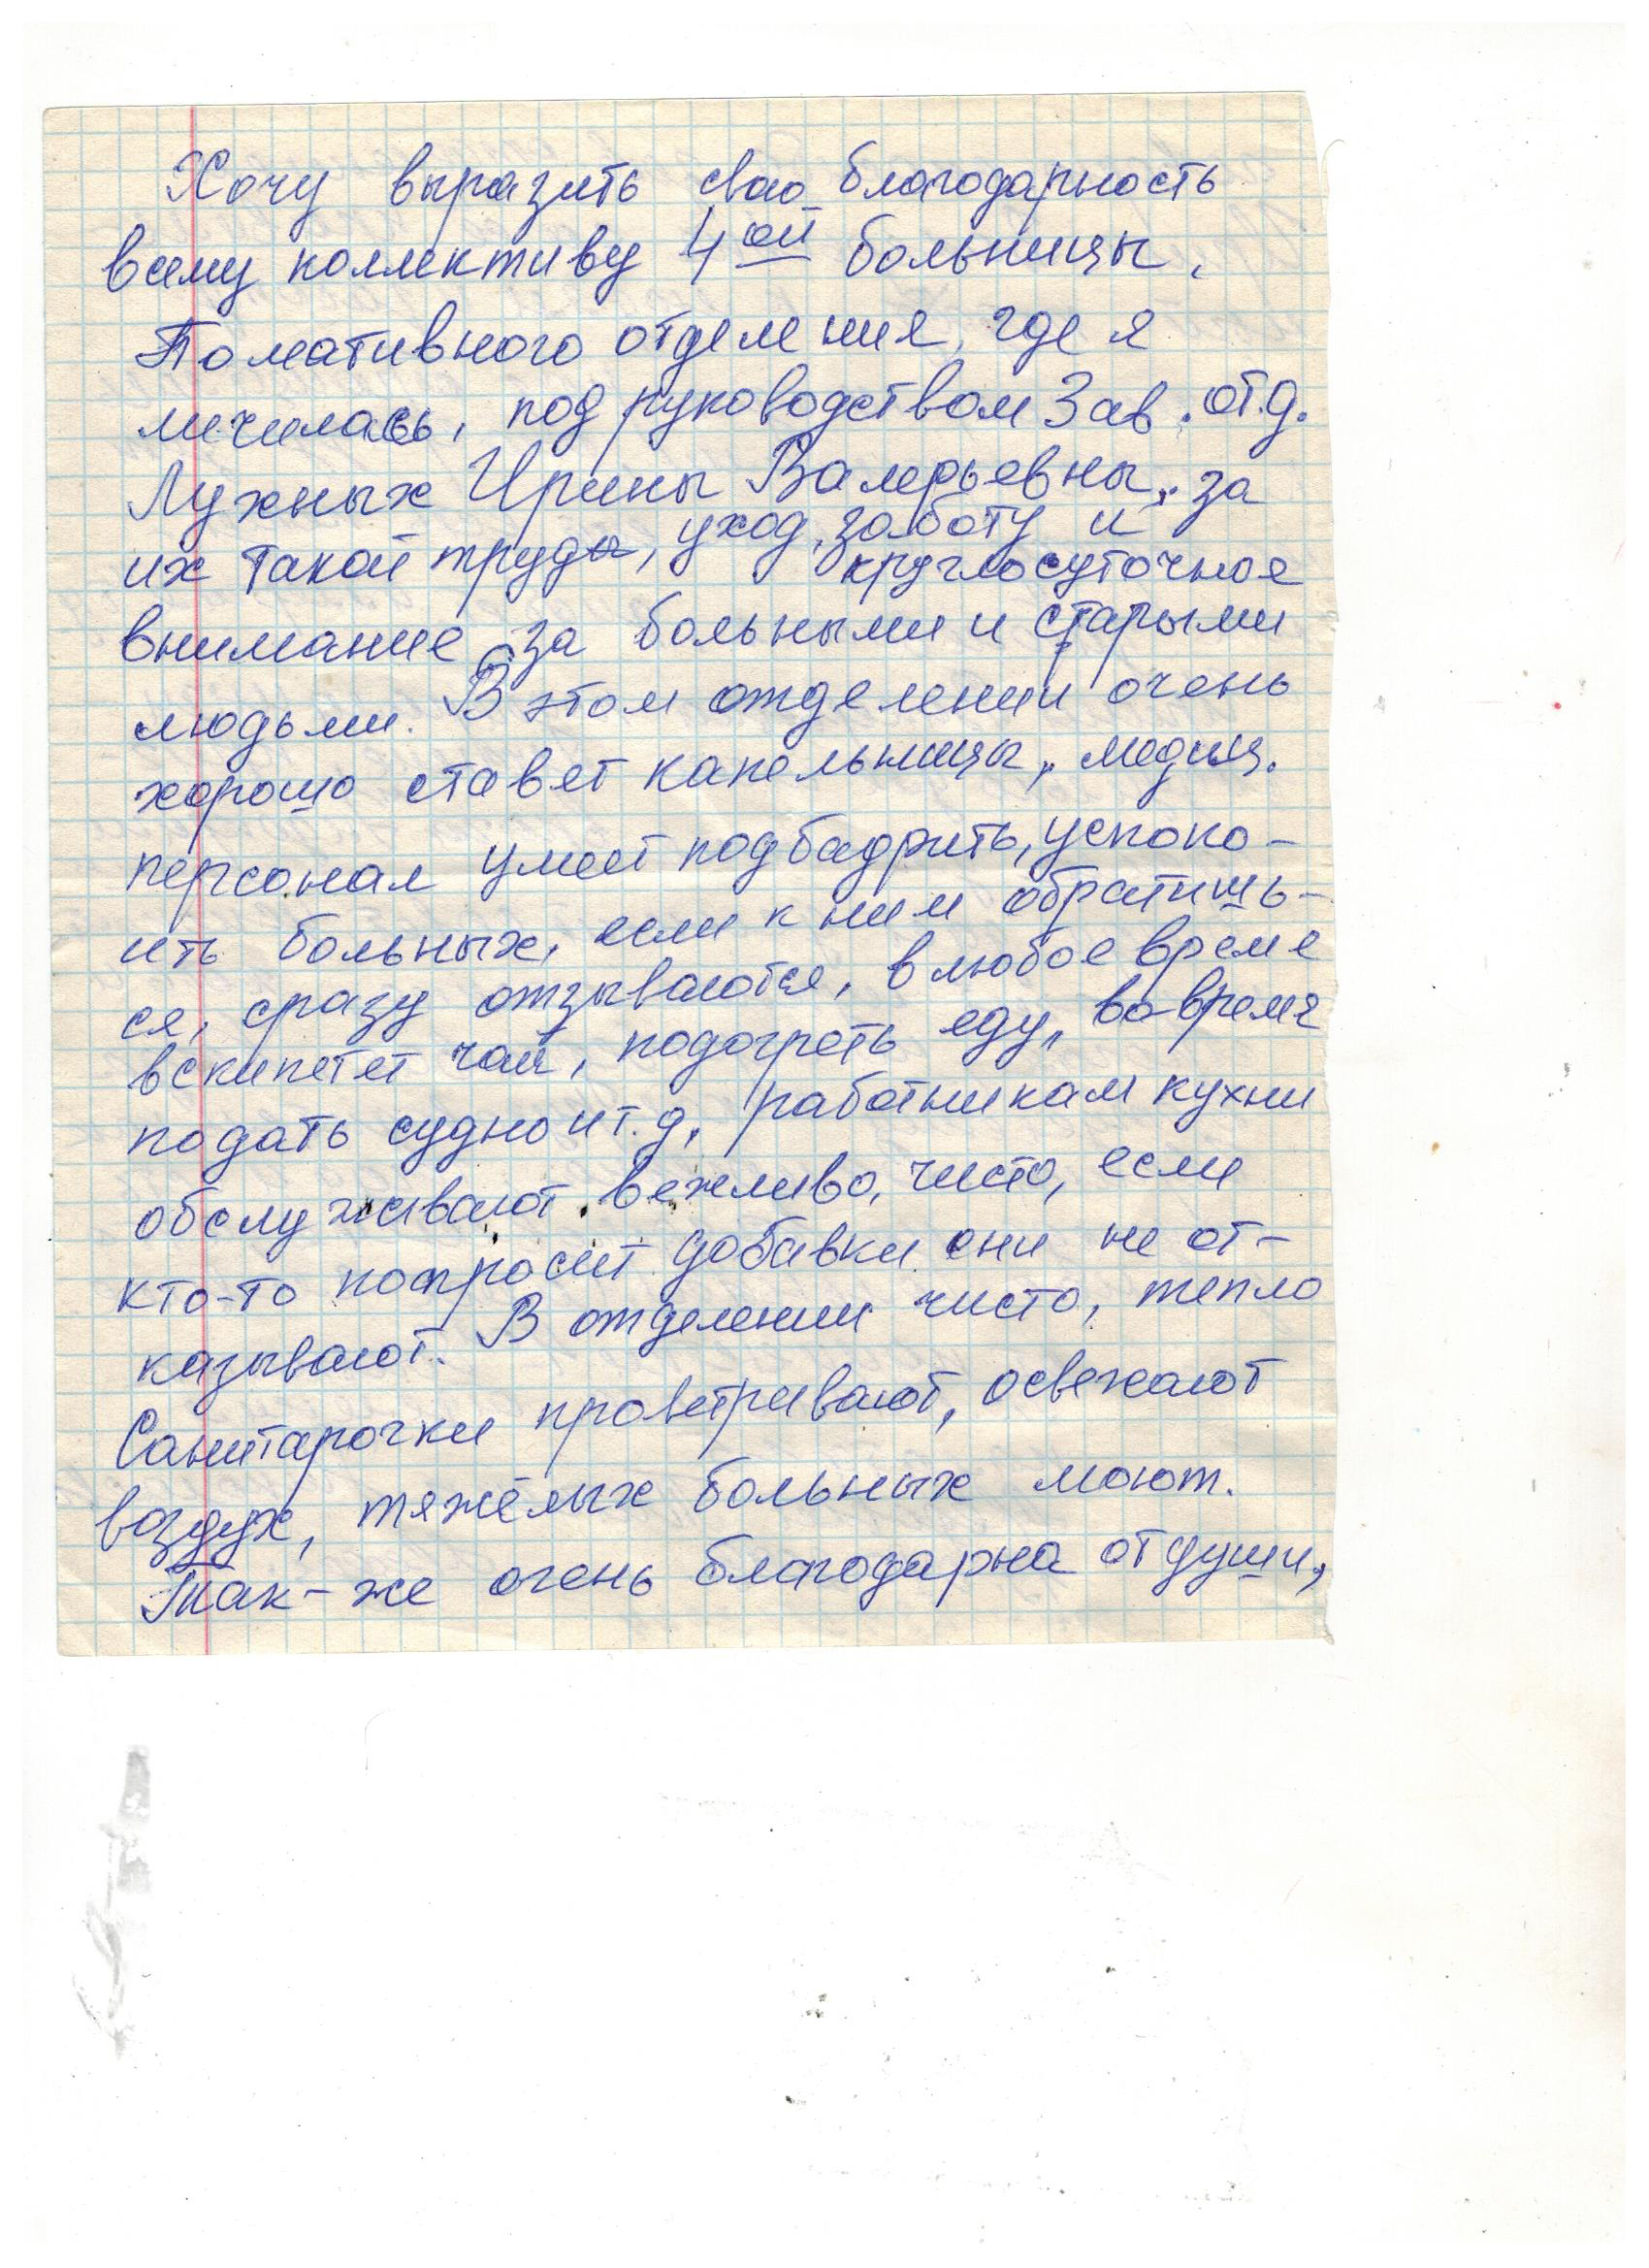 Хочу выразить свою благодарность
всему коллективу 4ой больницы,
Полеативного отделения, где я
личилась, под руководством Зав. отд.
Лужных Ирины Валерьевны, за
их такой труд, уход, заботу и
круглосуточное
внимание за больными и старыми
людьми. В этом отделении очень
хорошо ставят капельницы, медиц.
персонал умеет подбадрить, успоко-
ить больных, если к ним обратишь-
ся, сразу отзываются, в любое время
вскипетет чай, подогреть еду, во-время
подать судно и т.д, работникам кухни
обслуживают вежливо, чисто, если
кто-то попросит добавки они не от-
казывают. В отделении чисто, тепло
Санитарочки проветривают, освежают
воздух, тяжёлых больных моют.
Так-же очень благодарна от души,